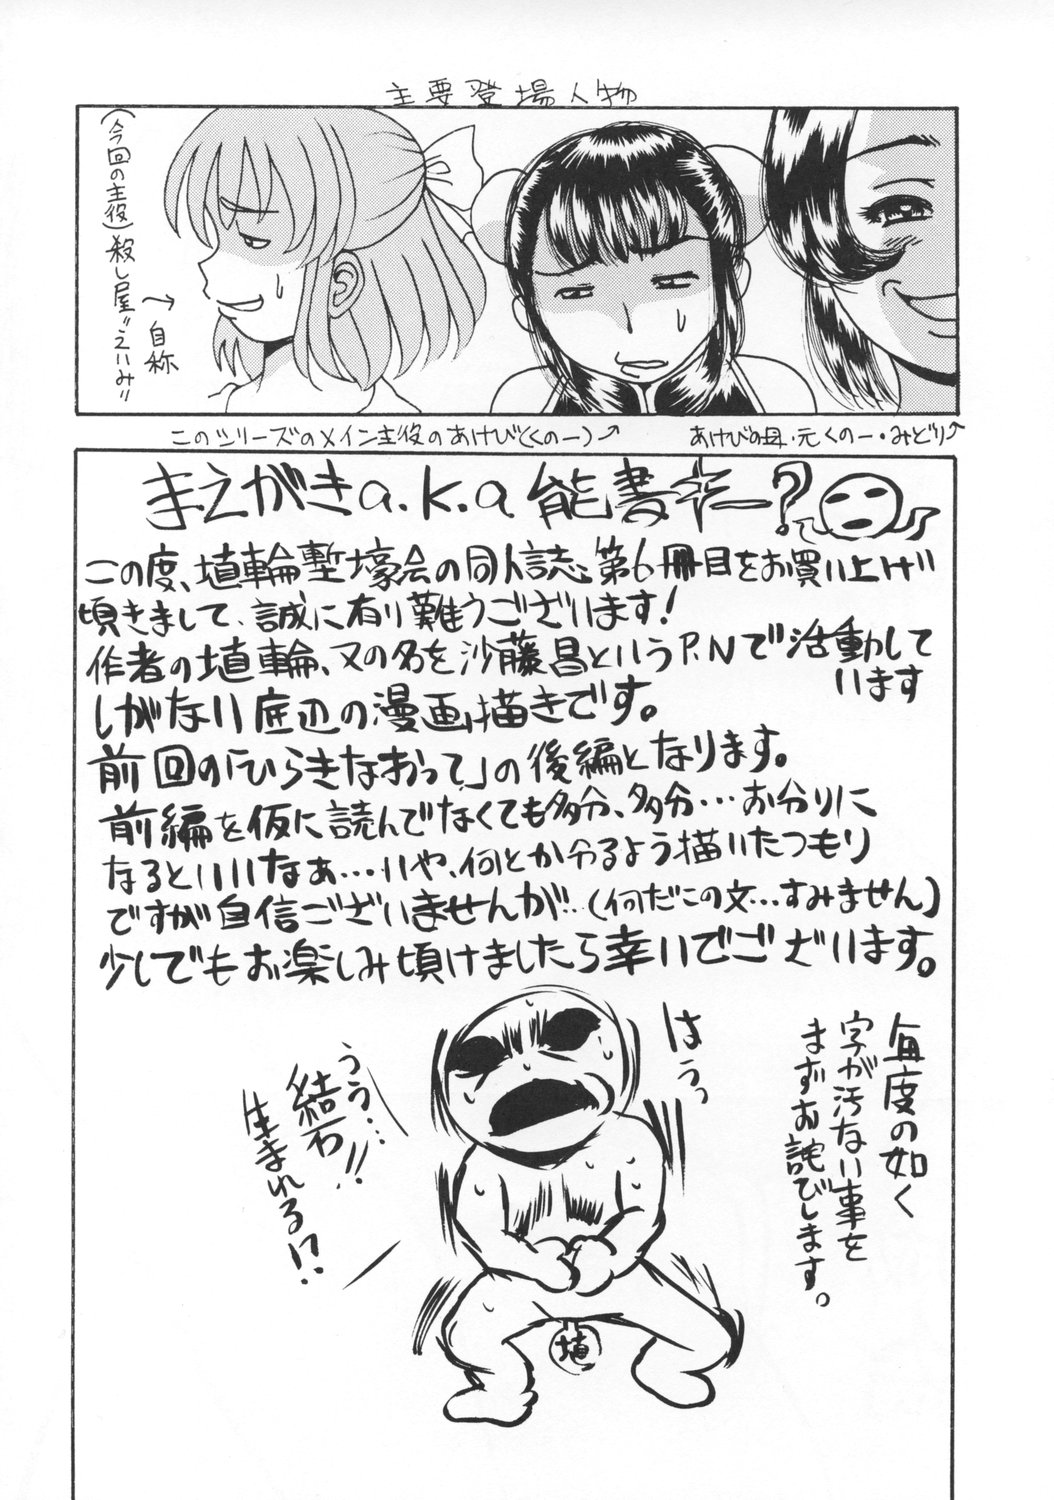 主要登場人物
(今回の主役)殺し屋"えいみ"
→自称
このシリーズのメイン主役のあけび(くの一)→
あけびの母・元くの一・みどり→
まえがきa.k.a能書キー?
この度、埴輪塹壕会の同人誌、第6冊目をお買い上げ
頃きまして、誠に有り難うございます!
作者の埴輪、又の名を沙藤昌というP.Nで活動して
います
しがない底辺の漫画描きです。
前回の「ひらきなおって」の後編となります。
前編を仮に読んでなくても多分、多分…お分りに
なるといいなぁ…いや、何とか分るよう描いたつもり
ですが自信ございませんが…(何だこの文…すみません)
少しでもお楽しみ頃けましたら幸いでございます。
毎度の如く
字が汚ない事を
まずお詫びします。
はぅっ
うう…
結石!!
生まれる!?
埴